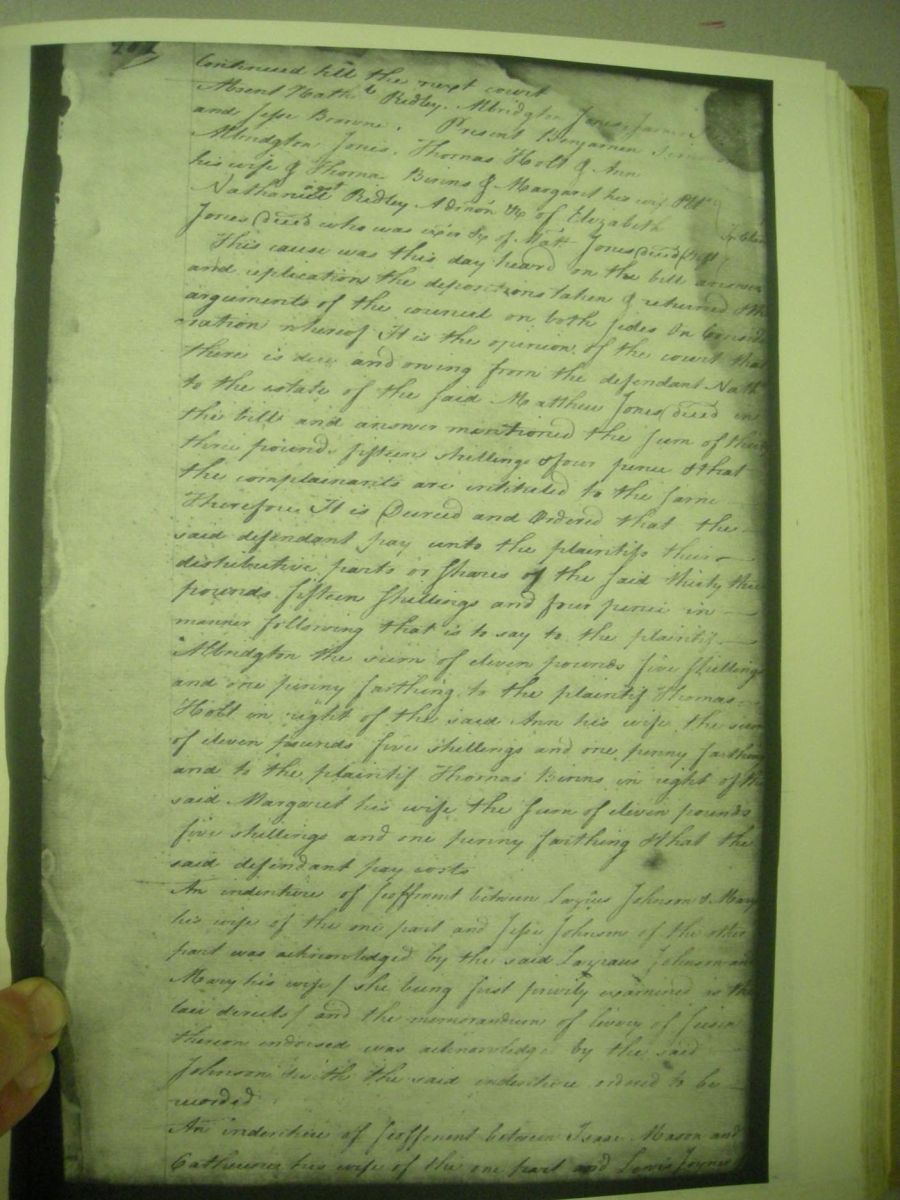 Continued till the next court
Absent Nath.l Ridley, Albridgton Jones, James
and Jesse Browne. Present Benjamen
Albridgton Jones, Thomas Holt & Ann
his wife & Thomas Binns & Margaret his wife Plt
agst
Nathaniel Ridley Admōn of Elizabeth
Jones decd who was of Matt Jones decd
This cause was this day heard on the bill answer
and replication the depositions taken & returned & the
arguments of the council on both sides On Conside
ration whereof It is the opinion of the court that
there is due and owing from the defendant Nath
to the estate of the said Matthew Jones decd in
the bill and answer mentioned the sum of thirty
three pounds fifteen shillings & four pence & that
the complainants are intitled to the same
Therefore It is Decreed and Ordered that the
said defendant pay unto the plaintifs their
distributive parts or shares of the said thirty three
pounds fifteen shillings and four pence in
manner following that is to say to the plaintif
Albridgton the sum of eleven pounds five shillings
and one penny farthing, to the plaintif Thomas
Holt in right of the said Ann his wife the sum
of eleven pounds five shillings and one penny farthing
and to the plaintif Thomas Binns in right of the
said Margaret his wife the sum of eleven pounds
five shillings and one penny farthing & that the
said defendant pay costs
An indenture of feoffment between Johnson & Mary
his wife of the one part and Jesse Johnson of the other
part was acknowledged by the said Johnson and
Mary his wife / she being first privily examined as the
law directs / and the memorandum of livery of seisin
thereon indorsed was acknowledge by the said
Johnson & with the said indenture ordered to be
recorded
An indenture of feoffment between Isaac Mason and
Catherine his wife of the one part and Lewis Joyner